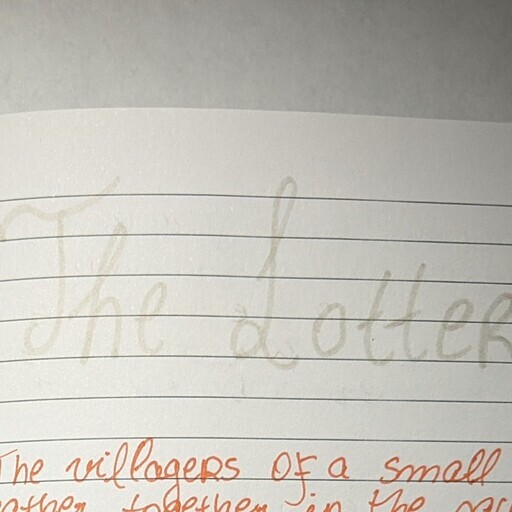 The Lotter
The villagers of a small
gather together in the